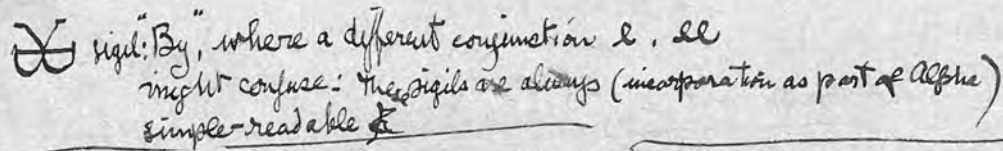 sigil: "By", where a different conjunction l. ll
might confuse: these sigils are always (incorporation as part of Alpha)
simple-readable